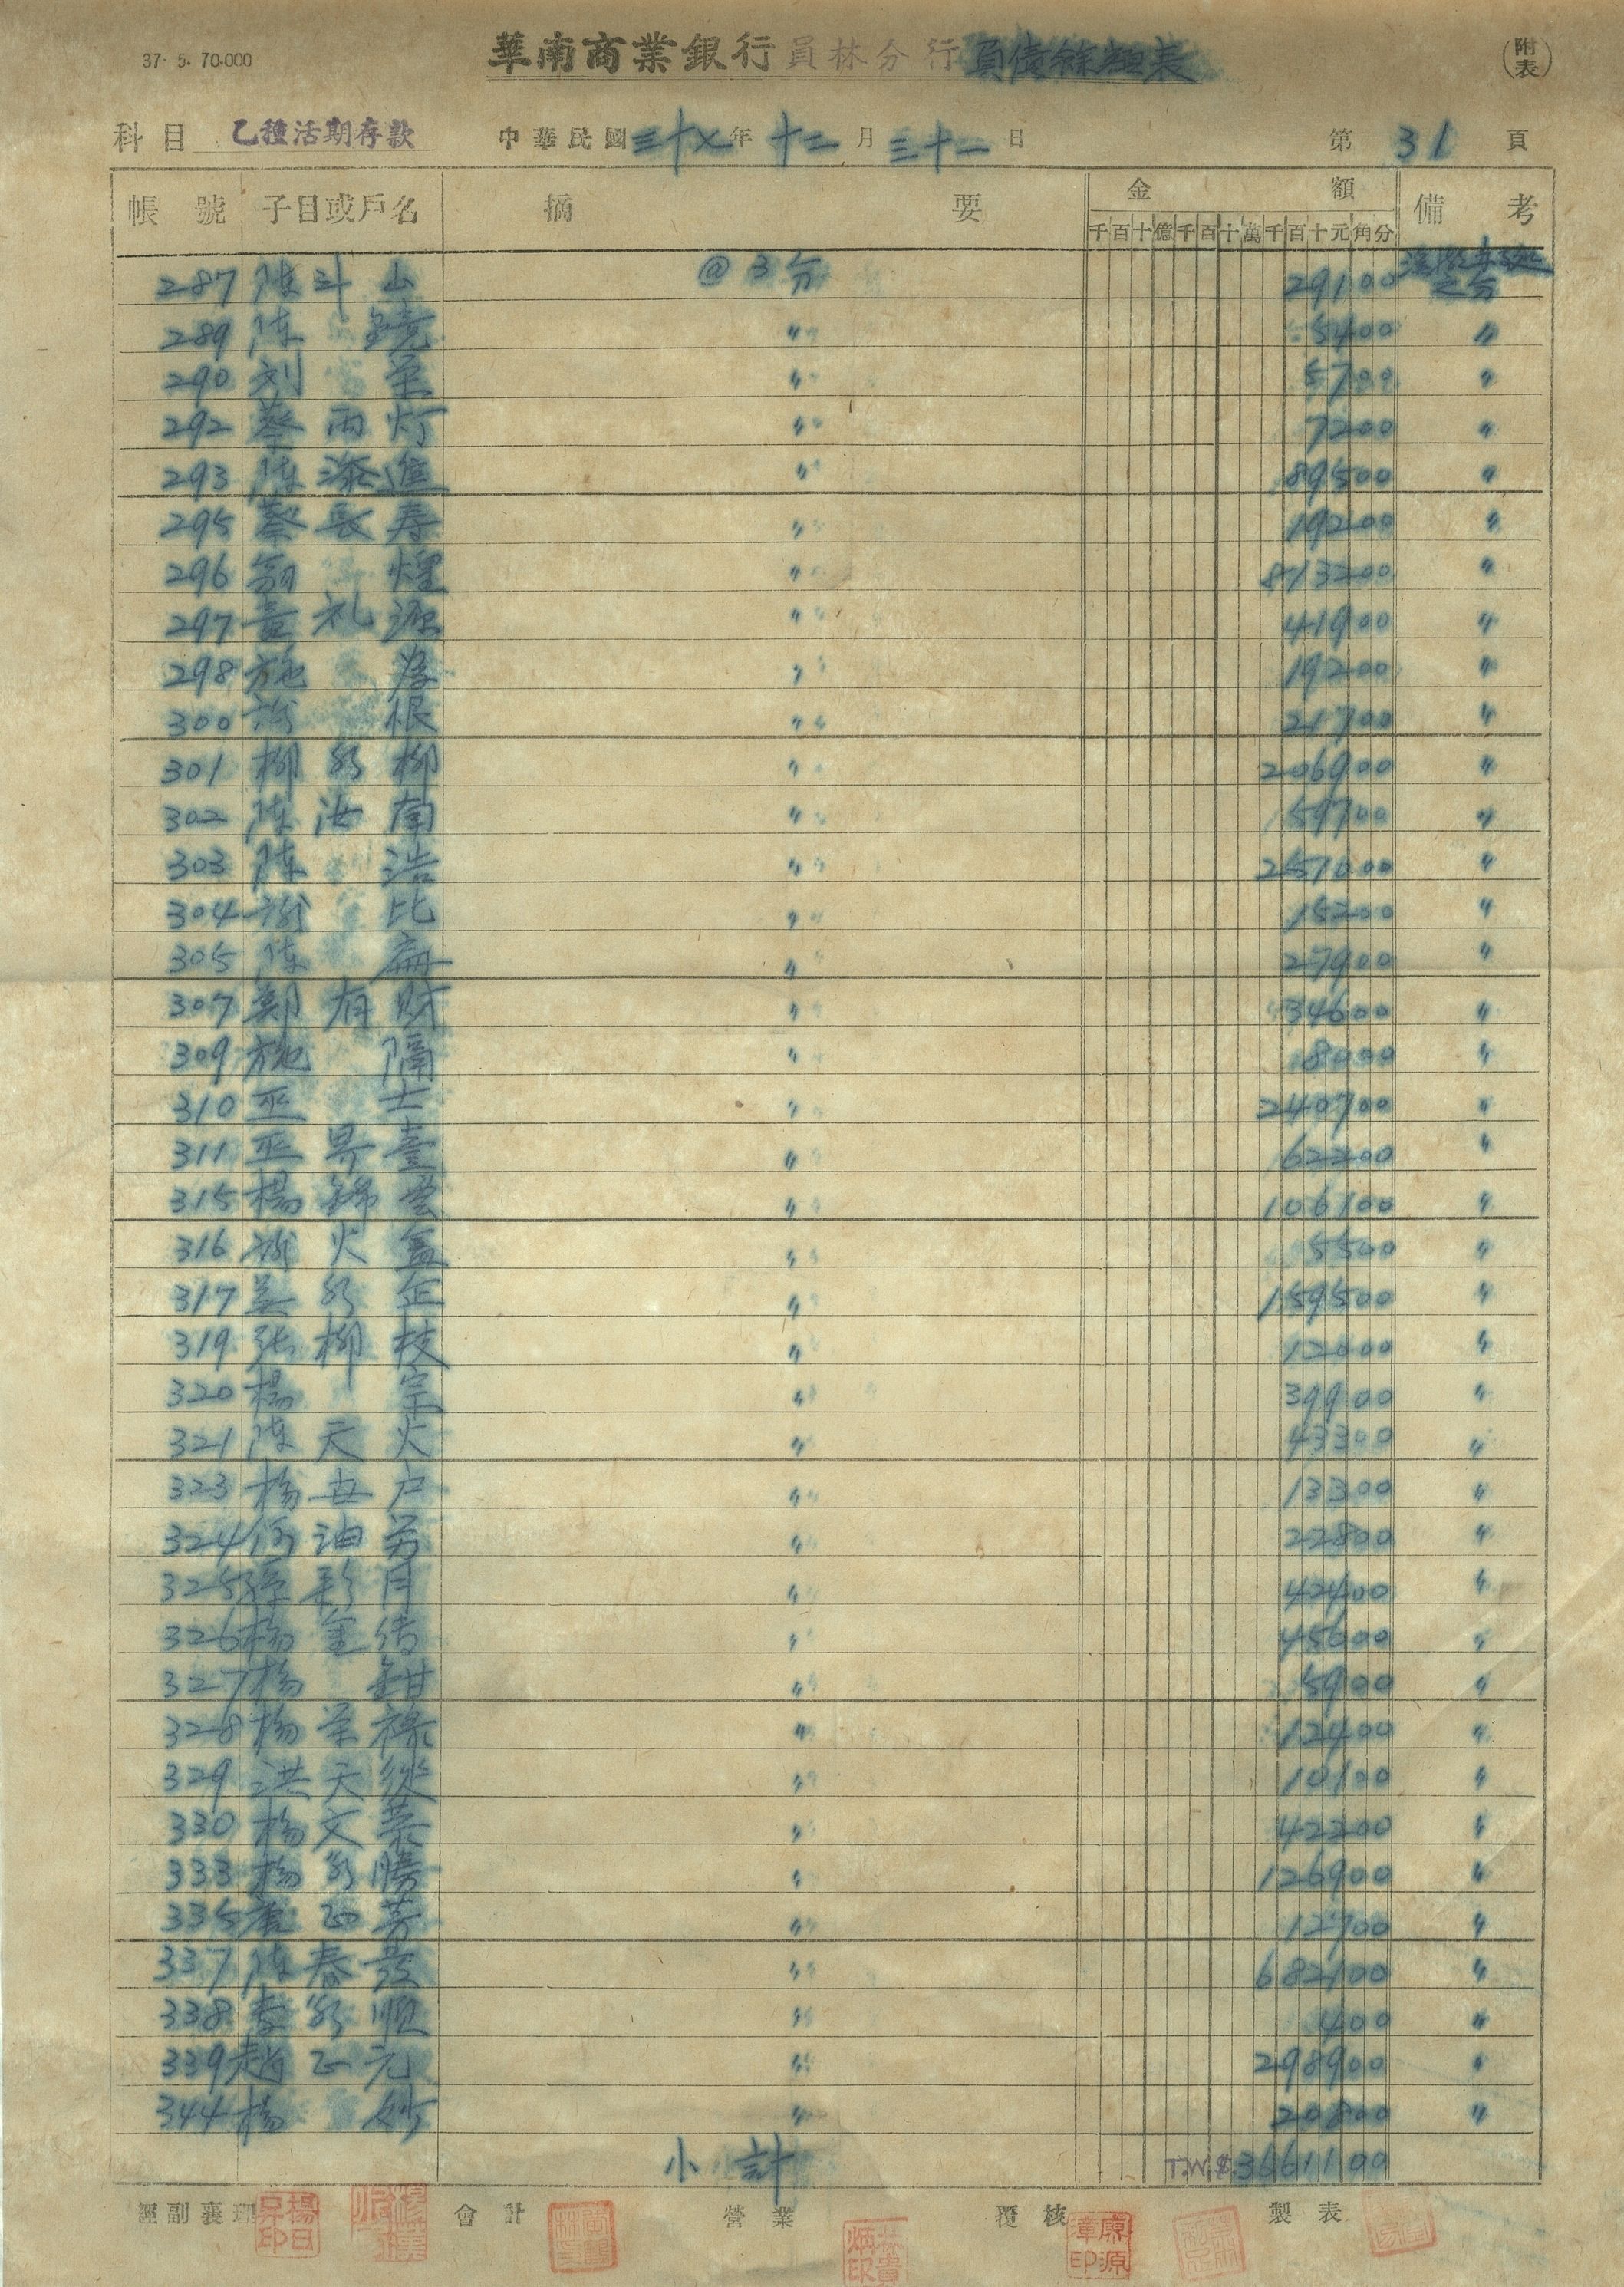 37. 5. 70.000
華南商業銀行員林分行負債餘額表
(附表)
科目 乙種活期存款 中華民國三十七年十二月三十一日 第31頁
帳號 子目或戶名 摘要 金額 備考
千百十億千百十萬千百十元角分
287 陳斗山 @3分 291.00 之分
289 陳 鐃 〃 54.00 〃
290 刘 榮 〃 57.00 〃
292 蔡丙灯 〃 72.00 〃
293 陳添進 〃 895.00 〃
295 蔡長寿 〃 192.00 〃
296 翁 煌 〃 8132.00 〃
297 黃礼源 〃 419.00 〃
298 施 〃 192.00 〃
300 謝 根 〃 217.00 〃
301 柳水柳 〃 2069.00 〃
302 陳汝南 〃 597.00 〃
303 陳 浩 〃 2570.00 〃
304 謝 比 〃 152.00 〃
305 陳 扁 〃 279.00 〃
307 鄭有財 〃 346.00 〃
309 施 隔 〃 80.00 〃
310 巫 士 〃 2407.00 〃
311 巫昇臺 〃 622.00 〃
315 楊錦雲 〃 1061.00 〃
316 謝火盒 〃 55.00 〃
317 吳水正 〃 1595.00 〃
319 張柳枝 〃 120.00 〃
320 楊 宗 〃 399.00 〃
321 陳天火 〃 433.00 〃
323 楊世戶 〃 133.00 〃
324 何油 〃 228.00 〃
325 孫彩月 〃 424.00 〃
326 楊金傳 〃 456.00 〃
327 楊 鉗 〃 59.00 〃
328 楊荣祿 〃 124.00 〃
329 洪天從 〃 101.00 〃
330 楊文慕 〃 422.00 〃
333 楊水勝 〃 1269.00 〃
335 芳 〃 127.00 〃
337 陳春 〃 6821.00 〃
338 李水順 〃 4.00 〃
339 趙正元 〃 2989.00 〃
344 楊 妙 〃 208.00 〃
小計 T.W.$.36611.00
經副襄理 會計 營業 覆核 製表
楊日昇印
廖源漳印